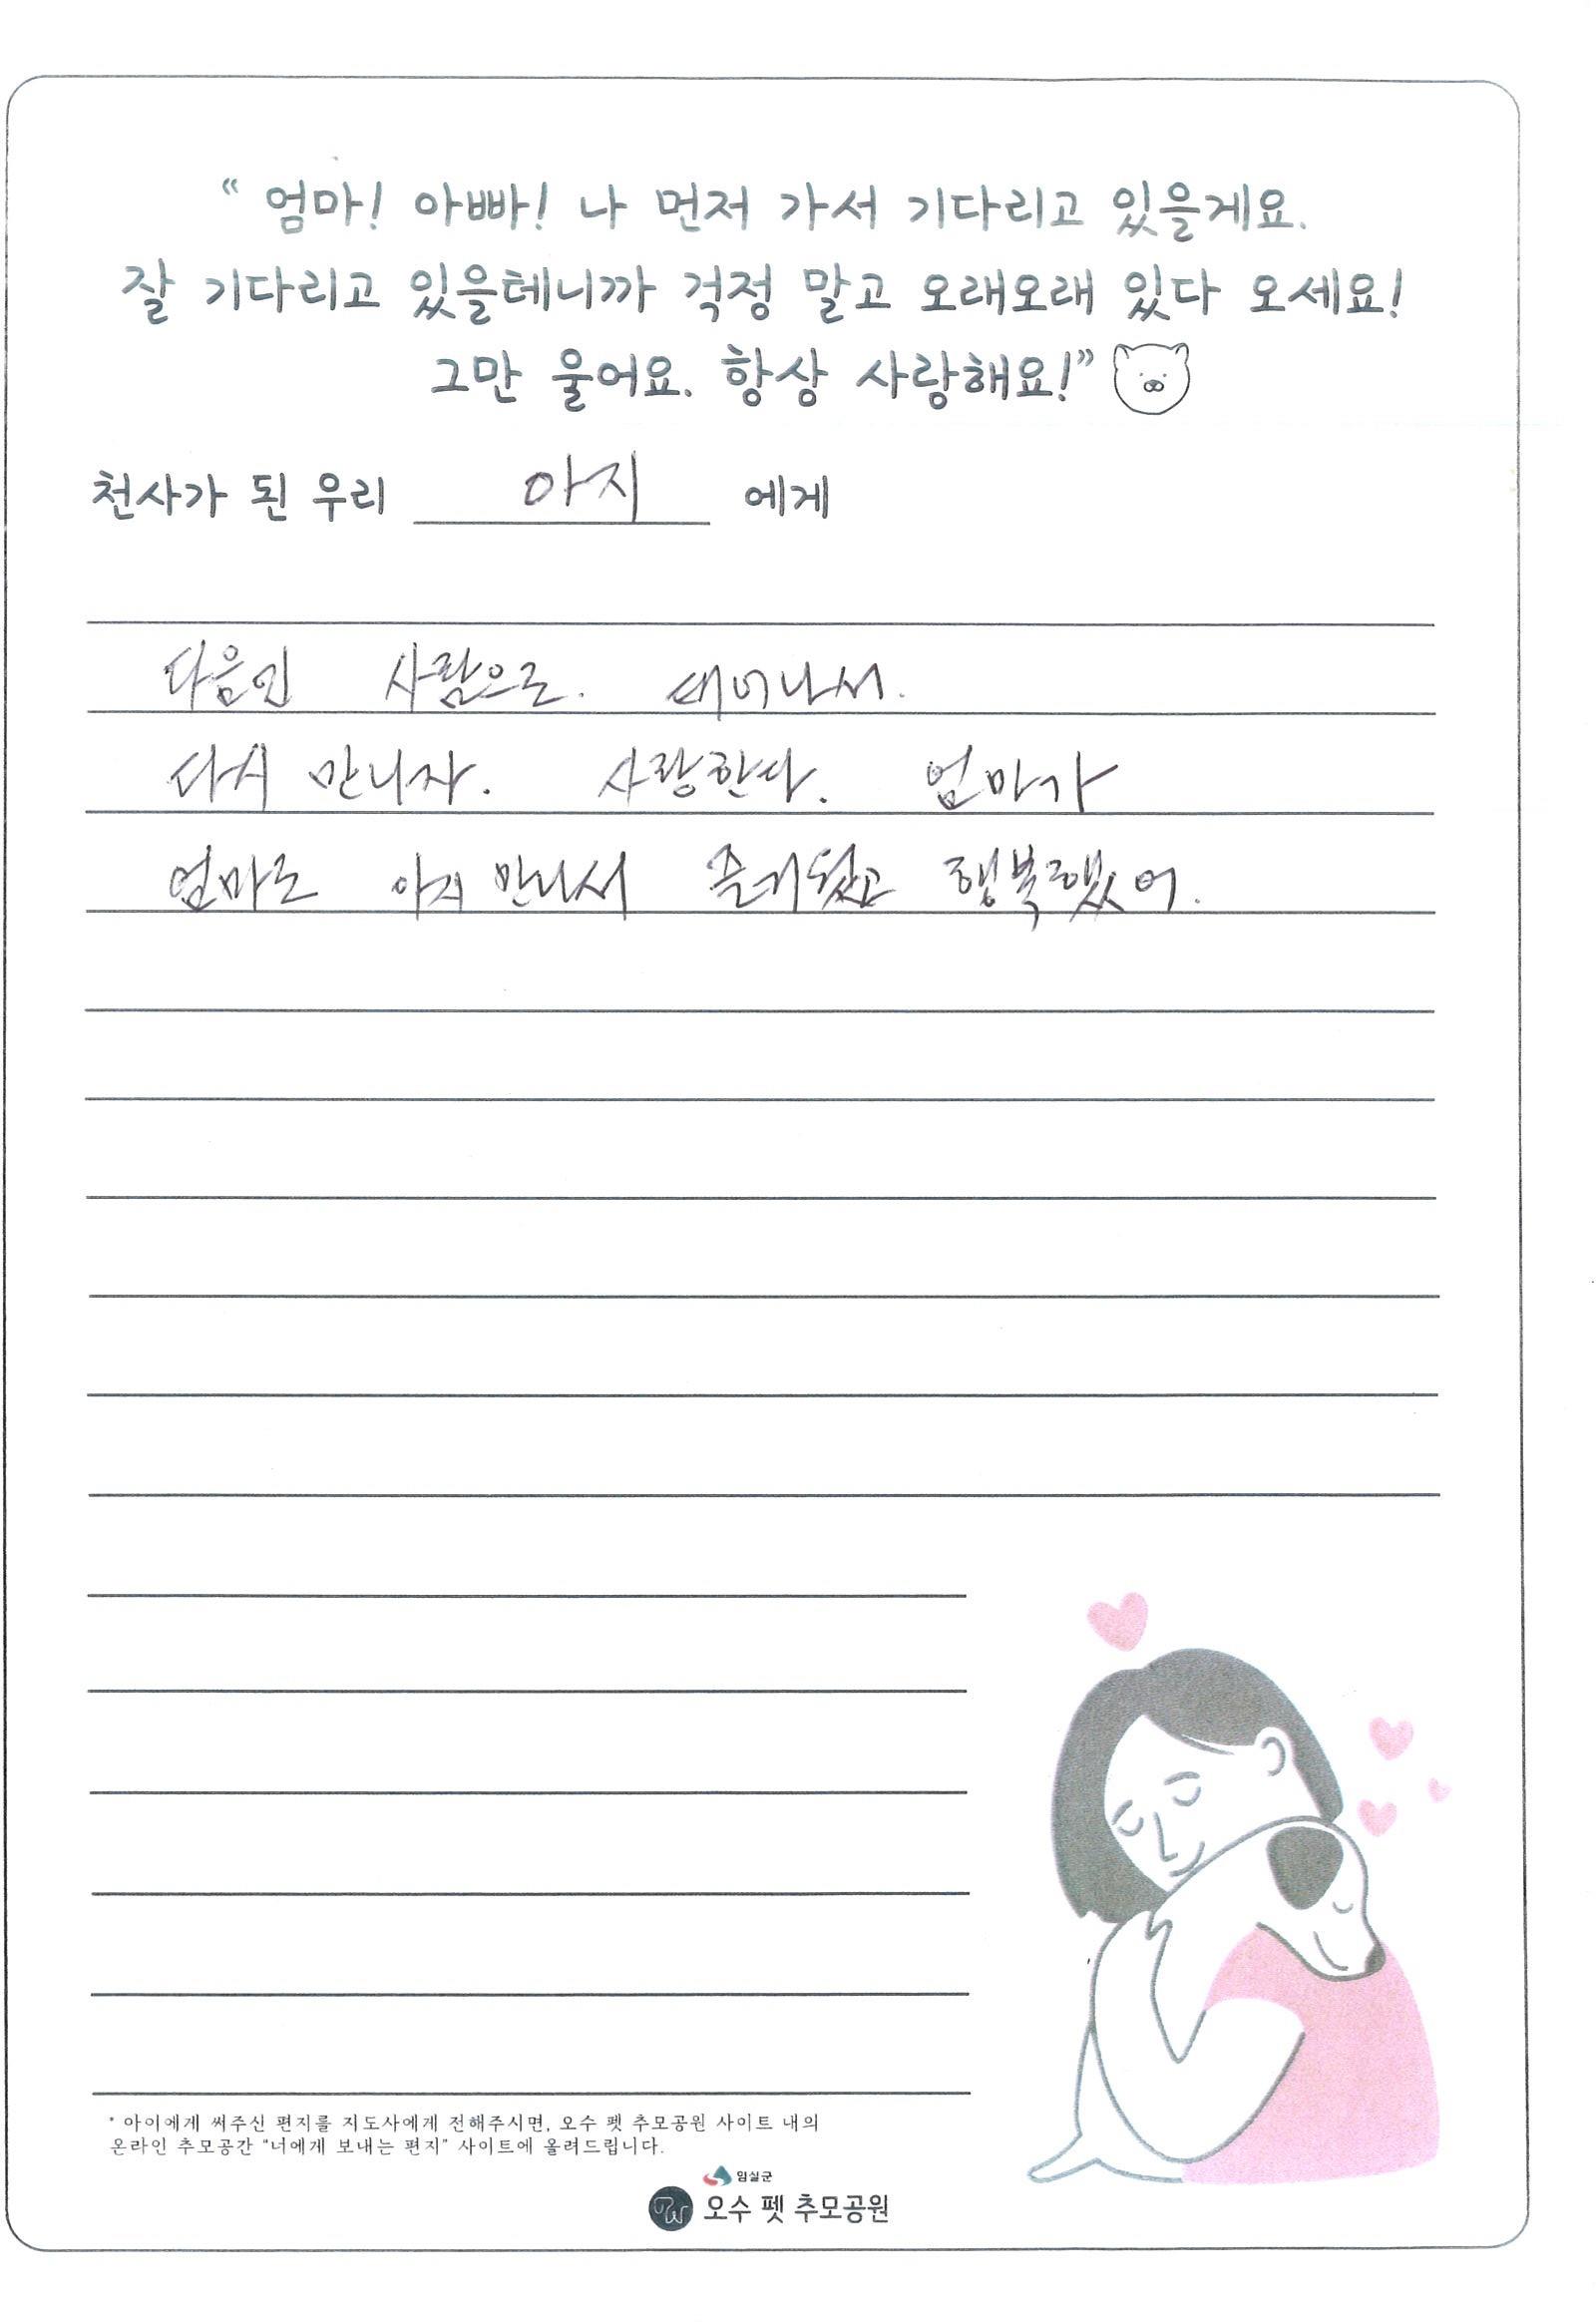 “ 엄마! 아빠! 나 먼저 가서 기다리고 있을게요.
잘 기다리고 있을테니까 걱정 말고 오래오래 있다 오세요!
그만 울어요. 항상 사랑해요!”
천사가 된 우리 아지 에게
다음엔 사람으로. 태어나서.
다시 만나자. 사랑한다. 엄마가
엄마도 아지 만나서 즐거웠고 행복했어.
* 아이에게 써주신 편지를 지도사에게 전해주시면, 오수 펫 추모공원 사이트 내의
온라인 추모공간 "너에게 보내는 편지" 사이트에 올려드립니다.
임실군
PW 오수 펫 추모공원